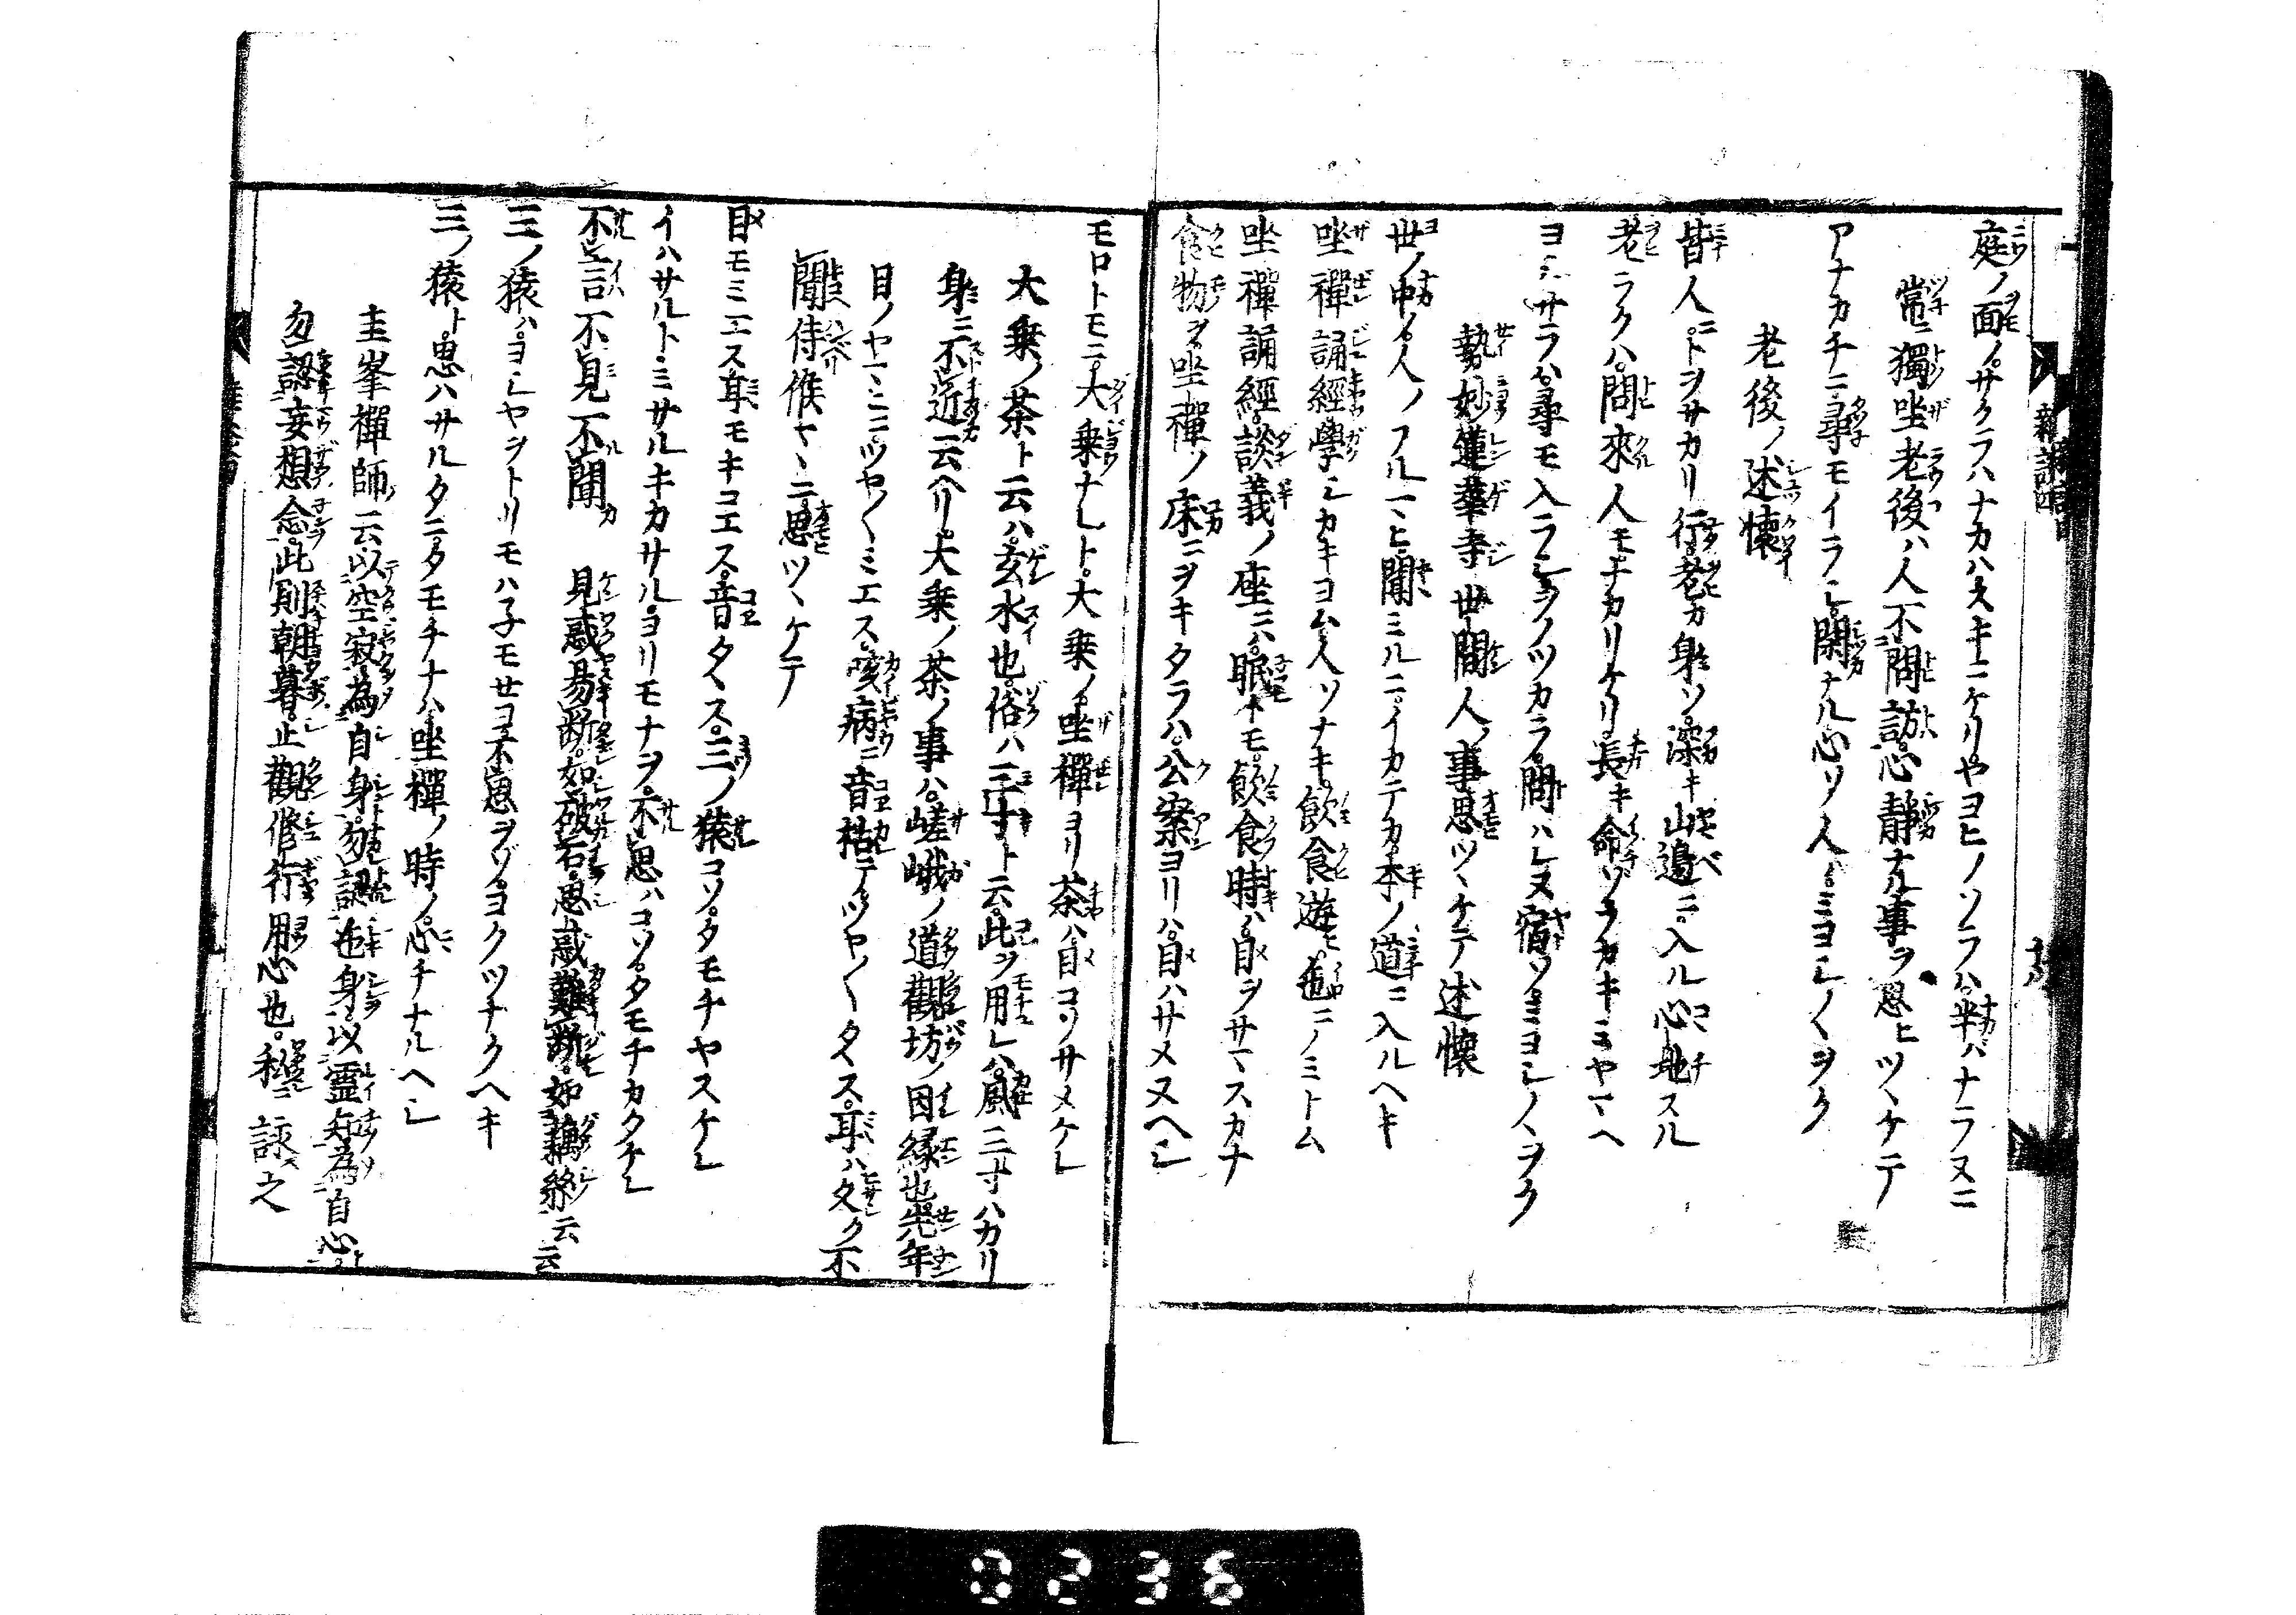 庭ノ面ノサクラハナカハスキニケリヤヨヒノソラハ半ハナラヌニ
常ニ獨坐老後ハ人不問訪心靜ナル事ヲ思ヒツヽケテ
アナカチニ尋モイラシ閑ナル心ソ人ノミヨシノヽヲク
老後ノ述懷
皆人ニトヲサカリ行老カ身ソ深キ山邉ニ入ル心地スル
老ラクハ問來人モナカリケリ長キ命ソラカキミヤマヘ
ヨシサラハ尋モ入ラシヲノツカラ問ハレヌ宿ソミヨシノヽヲク
勢妙蓮華寺世間人ノ事思ツヽケテ述懷
世ノ中ノ人ノフルマヒ聞ミルニイカテカ本ノ道ニ入ルヘキ
坐禪誦經學シカキヨム人ソナキ飲食遊ヒ世ニノミトム
坐禪誦經談義ノ座ニハ眠トモ飲食時ハ目ヲサマスカナ
食物ヲ坐禪ノ床ニヲキタラハ公案ヨリハ目ハサメヌヘシ
モロトモニ大乘ナレト大乘ノ坐禪ヨリ茶ハ目コソサメケレ
大乘ノ茶ト云ハ玄水也俗ハ三寸ト云此ヲ用レハ風三寸ハカリ
身ニ不近云ヘリ大乘ノ茶ノ事ハ嵯峨ノ道觀坊ノ因縁也先年
目ノヤマミニツヤ〱ミエス咳病ニ音枯テツヤ〱タヽス耳ハタヽク不
聞侍候マヽニ思ツヽケテ
目モミエス耳モキコエス音タヽス三ノ猿コソタモチヤスケレ
イハサルトミサルキカサルヨリモナヲ不思ハコソタモチカタケレ
不言不見不聞 見惑易断如破石思惑難断如藕絲云云
三ノ猿ハヨシヤヲトリモハネモセヨ不思ヲゾヨクツナクヘキ
三ノ猿ト思ハサルタニタモチナハ坐禪ノ時ノ心チナルヘシ
圭峯禪師云以空寂為自身勿認色身以靈知為自心
勿認妄想念此則朝暮止觀修行用心也
詠之